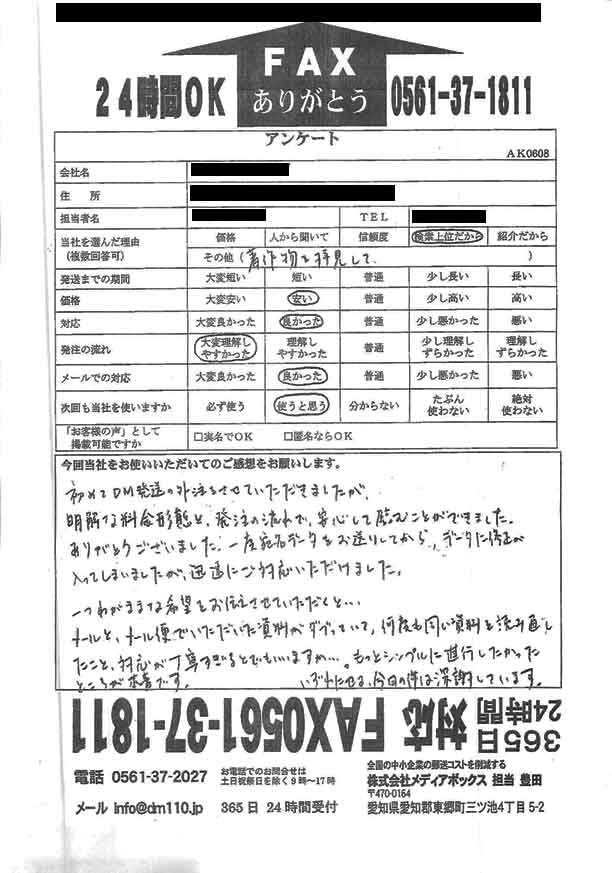 FAX
ありがとう
24時間OK
0561-37-1811
アンケート
AK0608
会社名
住　所
担当者名　TEL
当社を選んだ理由（複数回答可）　価格　人から聞いて　信頼度　検索上位だから　紹介だから
その他（著作物を拝見して．　）
発送までの期間　大変短い　短い　普通　少し長い　長い
価格　大変安い　安い　普通　少し高い　高い
対応　大変良かった　良かった　普通　少し悪かった　悪い
発注の流れ　大変理解しやすかった　理解しやすかった　普通　少し理解しずらかった　理解しずらかった
メールでの対応　大変良かった　良かった　普通　少し悪かった　悪い
次回も当社を使いますか　必ず使う　使うと思う　分からない　たぶん使わない　絶対使わない
「お客様の声」として掲載可能ですか　□実名でOK　□匿名ならOK
今回当社をお使いいただいてのご感想をお願いします。
初めてDM発送の外注をさせていただきましたが、
明解な料金形態と、発注の流れで、安心して臨むことができました。
ありがとうございました。一度宛名データをお送りしてから、データに修正が
入ってしまいましたが、迅速にご対応いただけました。
一つわがままな希望をお伝えさせていただくと…
メールと、メール便でいただいた資料がダブっていて、何度も同じ資料を読み直し
たこと、対応が丁寧すぎるとでもいいますか…。もっとシンプルに進行したかった
ところが本音です。　いずれにせよ、今回の件は深謝しています。
365日24時間対応 FAX0561-37-1811
電話 0561-37-2027
お電話でのお問合せは
土日祝祭日を除く9時～17時
メール info@dm110.jp　365日 24時間受付
全国の中小企業の郵送コストを削減する
株式会社メディアボックス 担当 豊田
〒470-0164
愛知県愛知郡東郷町三ツ池4丁目5-2